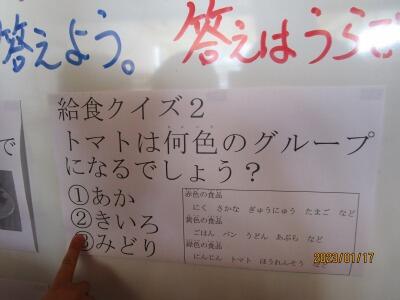 答えよう。
答えはうら
で
給食クイズ2
トマトは何色のグループ
になるでしょう？
①あか
②きいろ
③みどり
赤色の食品
にく さかな ぎゅうにゅう たまご など
黄色の食品
ごはん パン うどん あぶら など
緑色の食品
にんじん トマト ほうれんそう など
2023/01/17